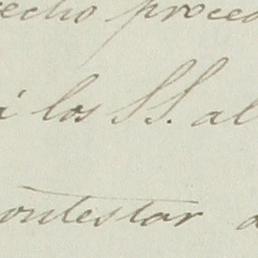 echo proced
á los SS. al
contestar a